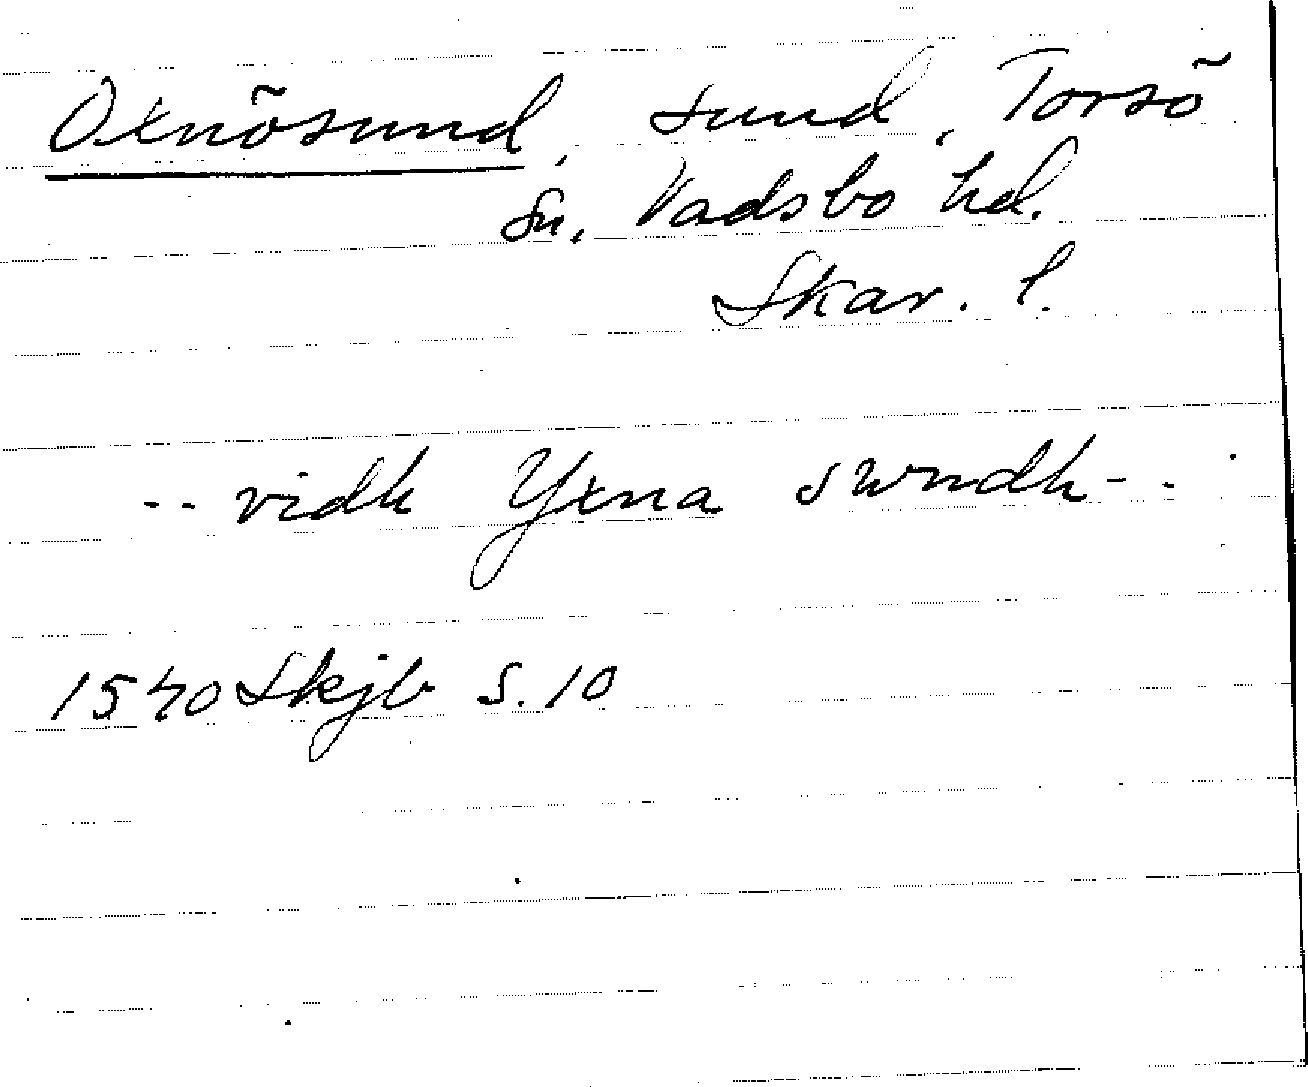 Oxnösund, sund, Torsö
sn, Vadsbo hd.
Skar. l.
-- vidh Yxna swndh --
1540 Skjb s. 10